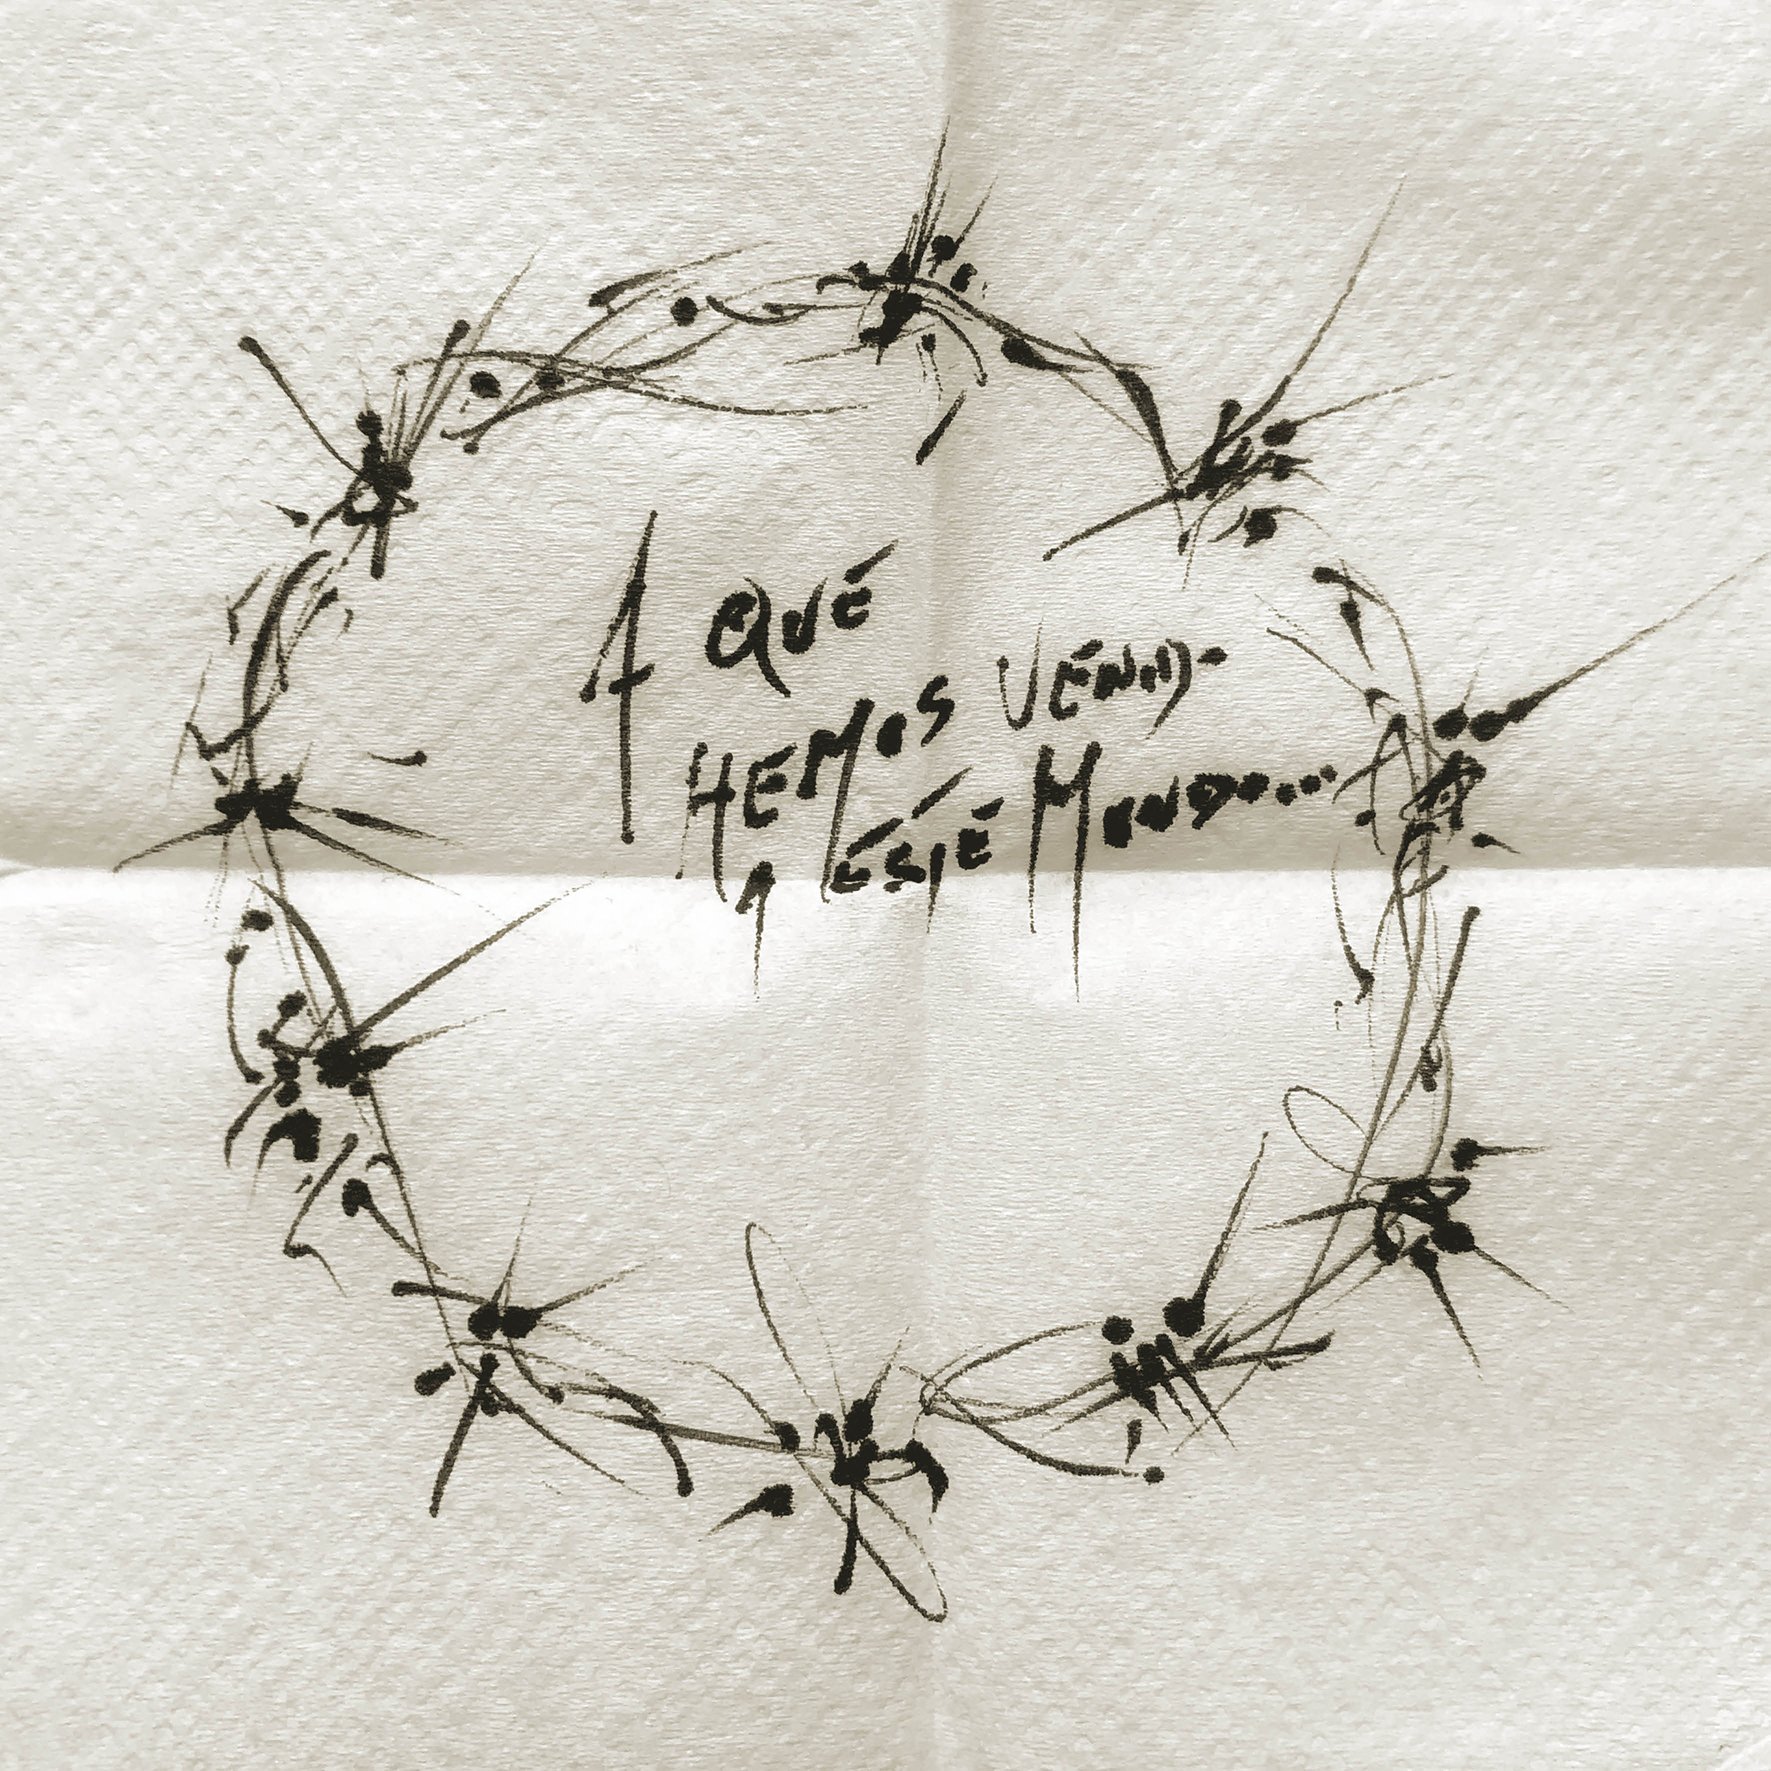 A QUÉ
HEMOS VENIDO
A ESTE MUNDO...